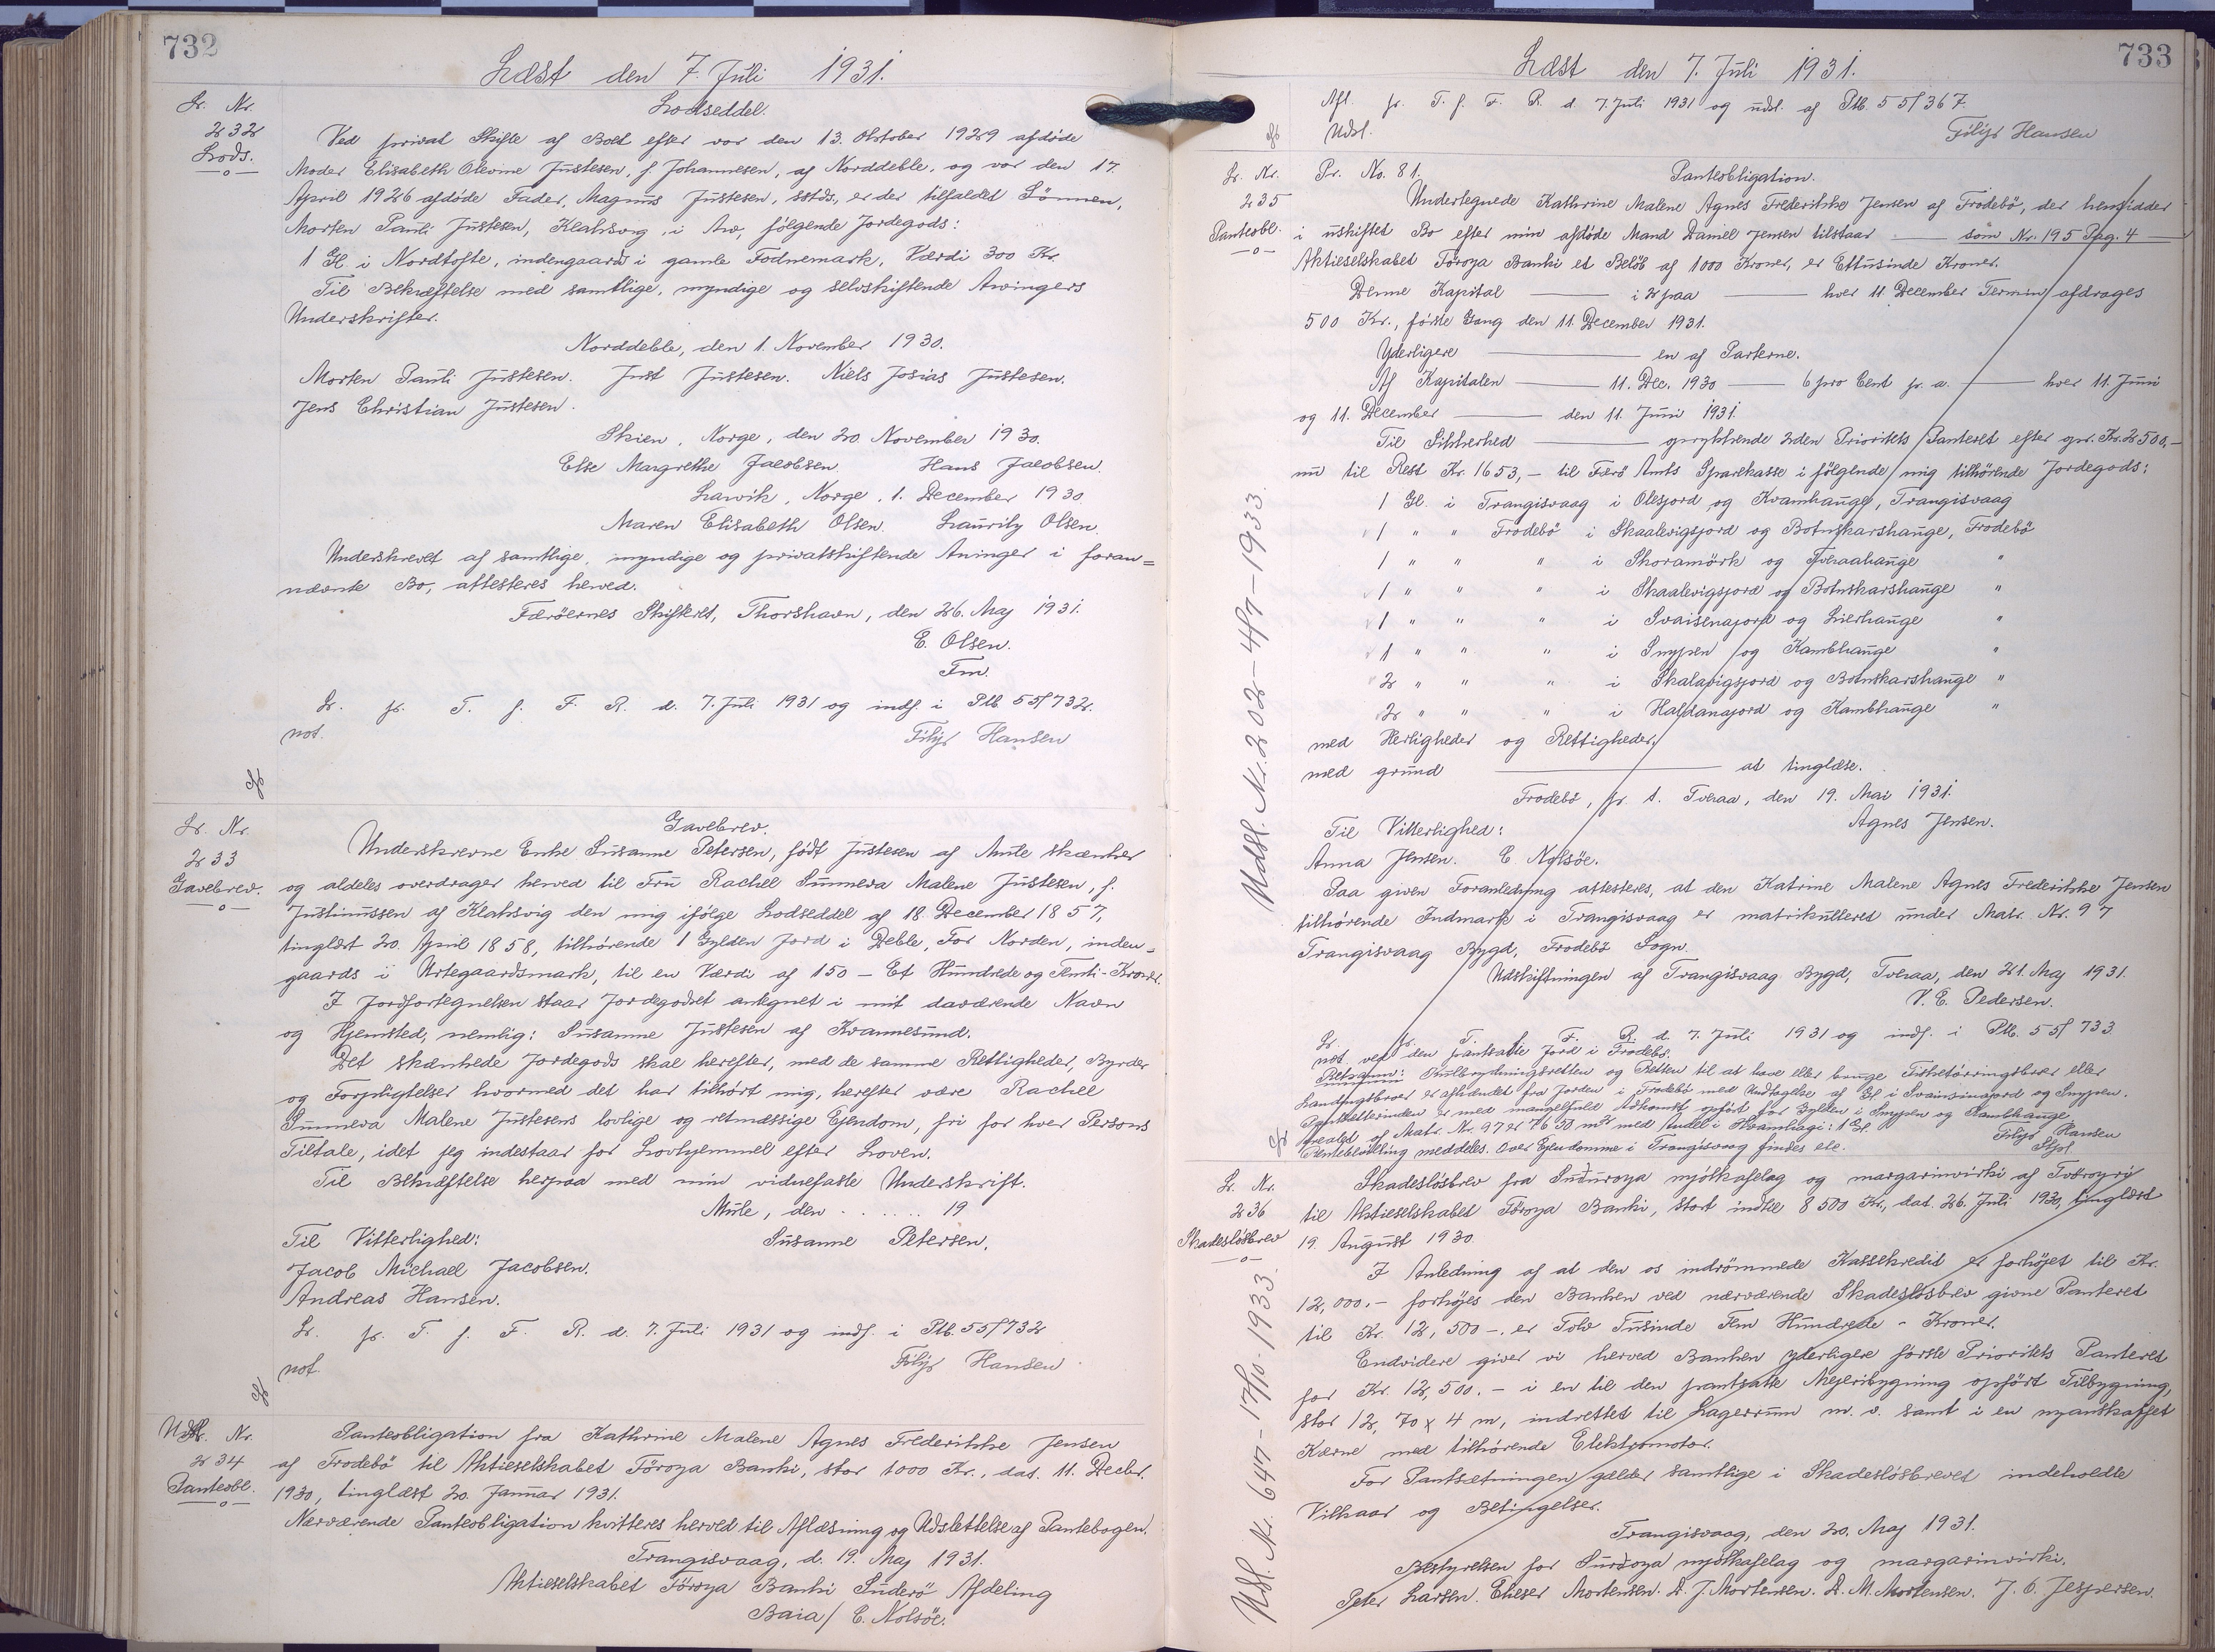 732
Læst den 7. Juli 1931.
Lr. Nr.
232
Lods.
Lodseddel.
Ved privat Skifte af Boet efter vor den 13. Oktober 1929 afdöde
Moder Elisabeth Olevine Justesen, f. Johannesen, af Norddeble, og vor den 17.
April 1926 afdöde Fader, Magnus Justesen, sstds., er der tilfaldet Sönnen,
Morten Pauli Justesen, Klaksvig, i Arv, følgende Jordegods:
1 Gl. i Nordtofte, indengaards i gamle Fodnemark, Værdi 300 Kr.
Til Bekræftelse med samtlige, myndige og selvskiftende Arvingers
Underskrifter.
Norddeble, den 1. November 1930.
Morten Pauli Justesen. Just Justesen. Niels Josias Justesen.
Jens Christian Justesen.
Skien, Norge, den 20. November 1930.
Else Margrethe Jacobsen. Hans Jacobsen.
Larvik, Norge, 1. December 1930
Maren Elisabeth Olsen. Lauritz Olsen.
Underskrevet af samtlige, myndige og privatskiftende Arvinger i foran=
nævnte Bo, attesteres herved.
Færöernes Skifteret, Thorshavn, den 26. Maj 1931.
E. Olsen.
Fm.
Lr. pr. T. f. F. R. d. 7. Juli 1931 og indf. i Ptb 55f732.
not. Filip Hansen
Lr. Nr.
233
Gavebrev.
Gavebrev.
Underskrevne Enke Susanne Petersen, født Justesen af Mule skænker
og aldeles overdrager herved til Fru Rachel Sunneva Malene Justesen, f.
Justinussen af Klaksvig den mig ifölge Lodseddel af 18. December 1857,
tinglæst 20. April 1858, tilhørende 1 Gylden Jord i Deble, For Norden, inden=
gaards i Urtegaardsmark, til en Værdi af 150 - Et Hundrede og Femti - Kroner.
I Jordfortegnelsen staar Jordegodset antegnet i mit daværende Navn
og Hjemsted, nemlig: Susanne Justesen af Kvannesund.
Det skænkede Jordegods skal herefter, med de samme Rettigheder, Byrder
og Forpligtelser hvormed det har tilhørt mig, herefter være Rachel
Sunneva Malene Justesens lovlige og retmæssige Ejendom, fri for hver Persons
Tiltale, idet jeg indestaar for Lovhjemmel efter Loven.
Til Bekræftelse herpaa med min vidnefaste Underskrift.
Mule, den . . . . . . 19
Til Vitterlighed: Susanne Petersen.
Jacob Michael Jacobsen.
Andreas Hansen.
Lr. pr. T. f. F. R. d. 7. Juli 1931 og indf. i Ptb. 55f732
not. Filip Hansen
Lr. Nr.
234
Panteobl.
Panteobligation fra Kathrine Malene Agnes Frederikke Jensen
af Frodebö til Aktieselskabet Föroya Banki, stor 1000 Kr., dat. 11. Decbr.
1930, tinglæst 20. Januar 1931.
Nærværende Panteobligation kvitteres herved til Aflæsning og Udslettelse af Pantebogen.
Trangisvaag, d. 19. Maj 1931.
Aktieselskabet Föroya Banki Suderö Afdeling
Baia / C. Nolsöe.
733
Læst den 7. Juli 1931.
Afl. pr. T. f. F. R. d. 7. Juli 1931 og udsl. af Ptb. 55f367.
Udsl. Filip Hansen
Lr. Nr.
235
Panteobl.
Pr. No. 81. Panteobligation.
Undertegnede Kathrine Malene Agnes Frederikke Jensen af Frodebö, der hensidder
i uskiftet Bo efter min afdøde Mand Daniel Jensen tilstaar — som Nr. 195 Pag. 4 —
Aktieselskabet Föroya Banki et Belöb af 1000 Kroner, er Ettusinde Kroner.
Denne Kapital — i 2 paa — hver 11. December Termin afdrages
500 Kr., første Gang den 11. December 1931.
Yderligere — en af Parterne.
Af Kapitalen — 11. Dec. 1930 — 6 pro Cent pr. a. — hver 11. Juni
og 11. December — den 11. Juni 1931.
Til Sikkerhed — oprykkende 2den Prioritets Panteret efter opr. Kr. 2500,-
nu til Rest Kr. 1653,- til Færö Amts Sparekasse i følgende mig tilhörende Jordegods:
1 Gl. i Trangisvaag i Olesjord og Kvamhauge, Trangisvaag
1 " " Frodebö i Skaalevigsjord og Botnskarshauge, Frodebö
1 " " " i Skoramörk og Tveraahauge "
1 " " " i Skaalevigsjord og Botnskarshauge "
1 " " " i Svaisenajord og Lierhauge "
1 " " " i Snypen og Kambhauge "
2 " " " i Skalavigsjord og Botnskarshauge "
2 " " " i Halfdanajord og Kambhauge "
med Herligheder og Rettigheder.
med grund — at tinglæse.
Frodebö, pr. t. Tveraa, den 19. Mai 1931.
Til Vitterlighed: Agnes Jensen.
Anna Jensen. C. Nolsöe.
Paa given Foranledning attesteres, at den Katrine Malene Agnes Frederikke Jensen
tilhørende Indmark i Trangisvaag er matrikulleret under Matr. Nr. 97
Trangisvaag Bygd, Frodebö Sogn.
Udskiftningen af Trangisvaag Bygd, Tveraa, den 21. Maj 1931.
V. E. Pedersen.
Lr. pr. T. f. F. R. d. 7. Juli 1931 og indf. i Ptb. 55f733
not. ved den pantsatte Jord i Frodebö.
Retsanm: Kulbrydningsretten og Retten til at have eller bruge Fisketörringsbroer eller
Landingsbroer er afhændet fra Jorden i Frodebö med Undtagelse af Gl i Svainsinajord og Snypen.
Pantsætterinden er med mangelfuld Adkomst opført for Gylden i Snypen og Kambhauge
Arealet af Matr. Nr. 97 er 7650 m² med Andel i Hvamhagi: 1 Gl.
Pantebevilling meddeles. Over Ejendomme i Trangisvaag findes ele. Filip Hansen
Stpl.
Udsl. Nr. 202 - 4/7 - 1933.
Lr. Nr.
236
Skadesløsbrev
Skadesløsbrev fra Suduroya mjólkafelag og margarinvirki af Tvöroyri
til Aktieselskabet Föroya Banki, stort indtil 8500 Kr., dat. 26. Juli 1930, tinglæst
19. August 1930.
I Anledning af at den os indrömmede Kassekredit er forhøjet til Kr.
12,000.- forhøjes den Banken ved nærværende Skadesløsbrev givne Panteret
til Kr. 12,500 -, er Tolv Tusinde Fem Hundrede - Kroner.
Endvidere giver vi herved Banken yderligere første Prioritets Panteret
for Kr. 12,500.- i en til den pantsatte Mejeribygning opført Tilbygning,
stor 12,70 x 4 m, indrettet til Lagerrum m. v. samt i en nyanskaffet
Kærne med tilhørende Elektromotor.
For Pantsætningen gælder samtlige i Skadesløsbrevet indeholdte
Vilkaar og Betingelser.
Trangisvaag, den 20. Maj 1931.
Bestyrelsen for Surdoya mjólkafelag og margarinvirki.
Peter Larsen. Elieser Mortensen. D. J. Mortensen. D. M. Mortensen. J. C. Jespersen.
Udsl. Nr. 647 - 17/10. 1933.